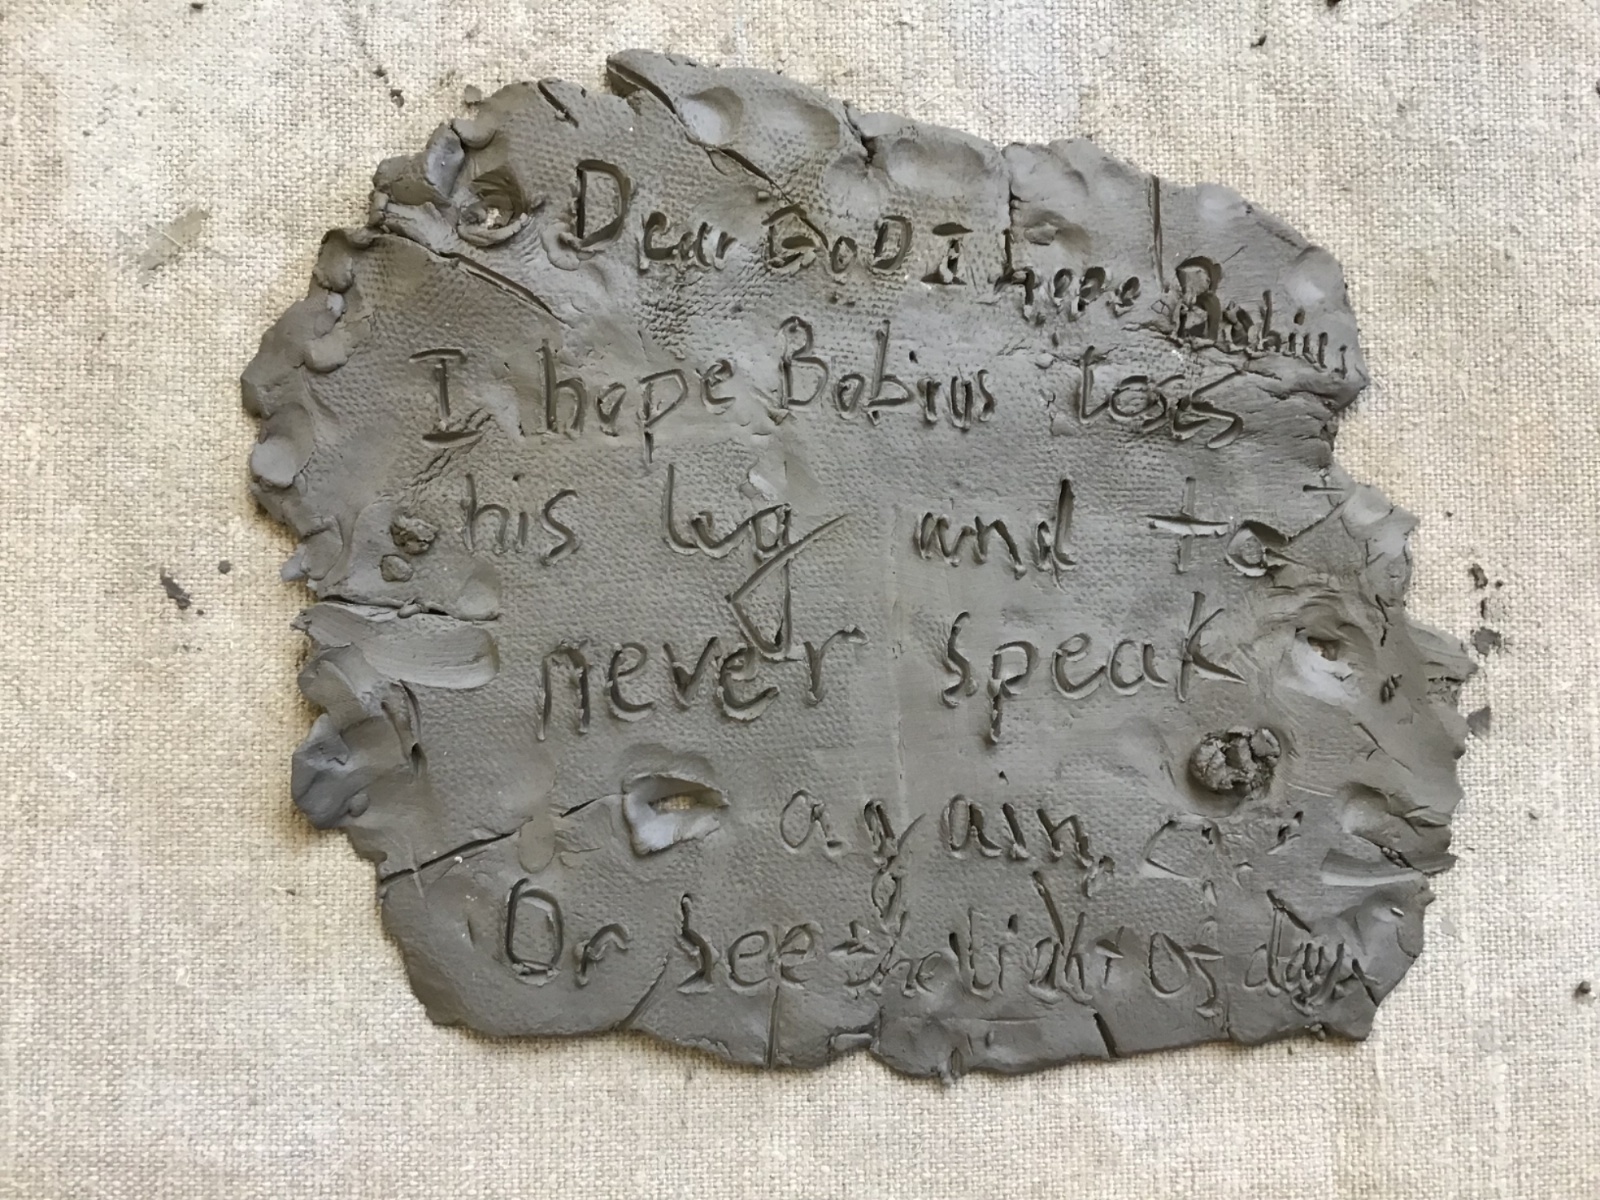 Dear GoD I hope Bobius
I hope Bobius loses
his leg and to
never speak
again,
Or see the light of day